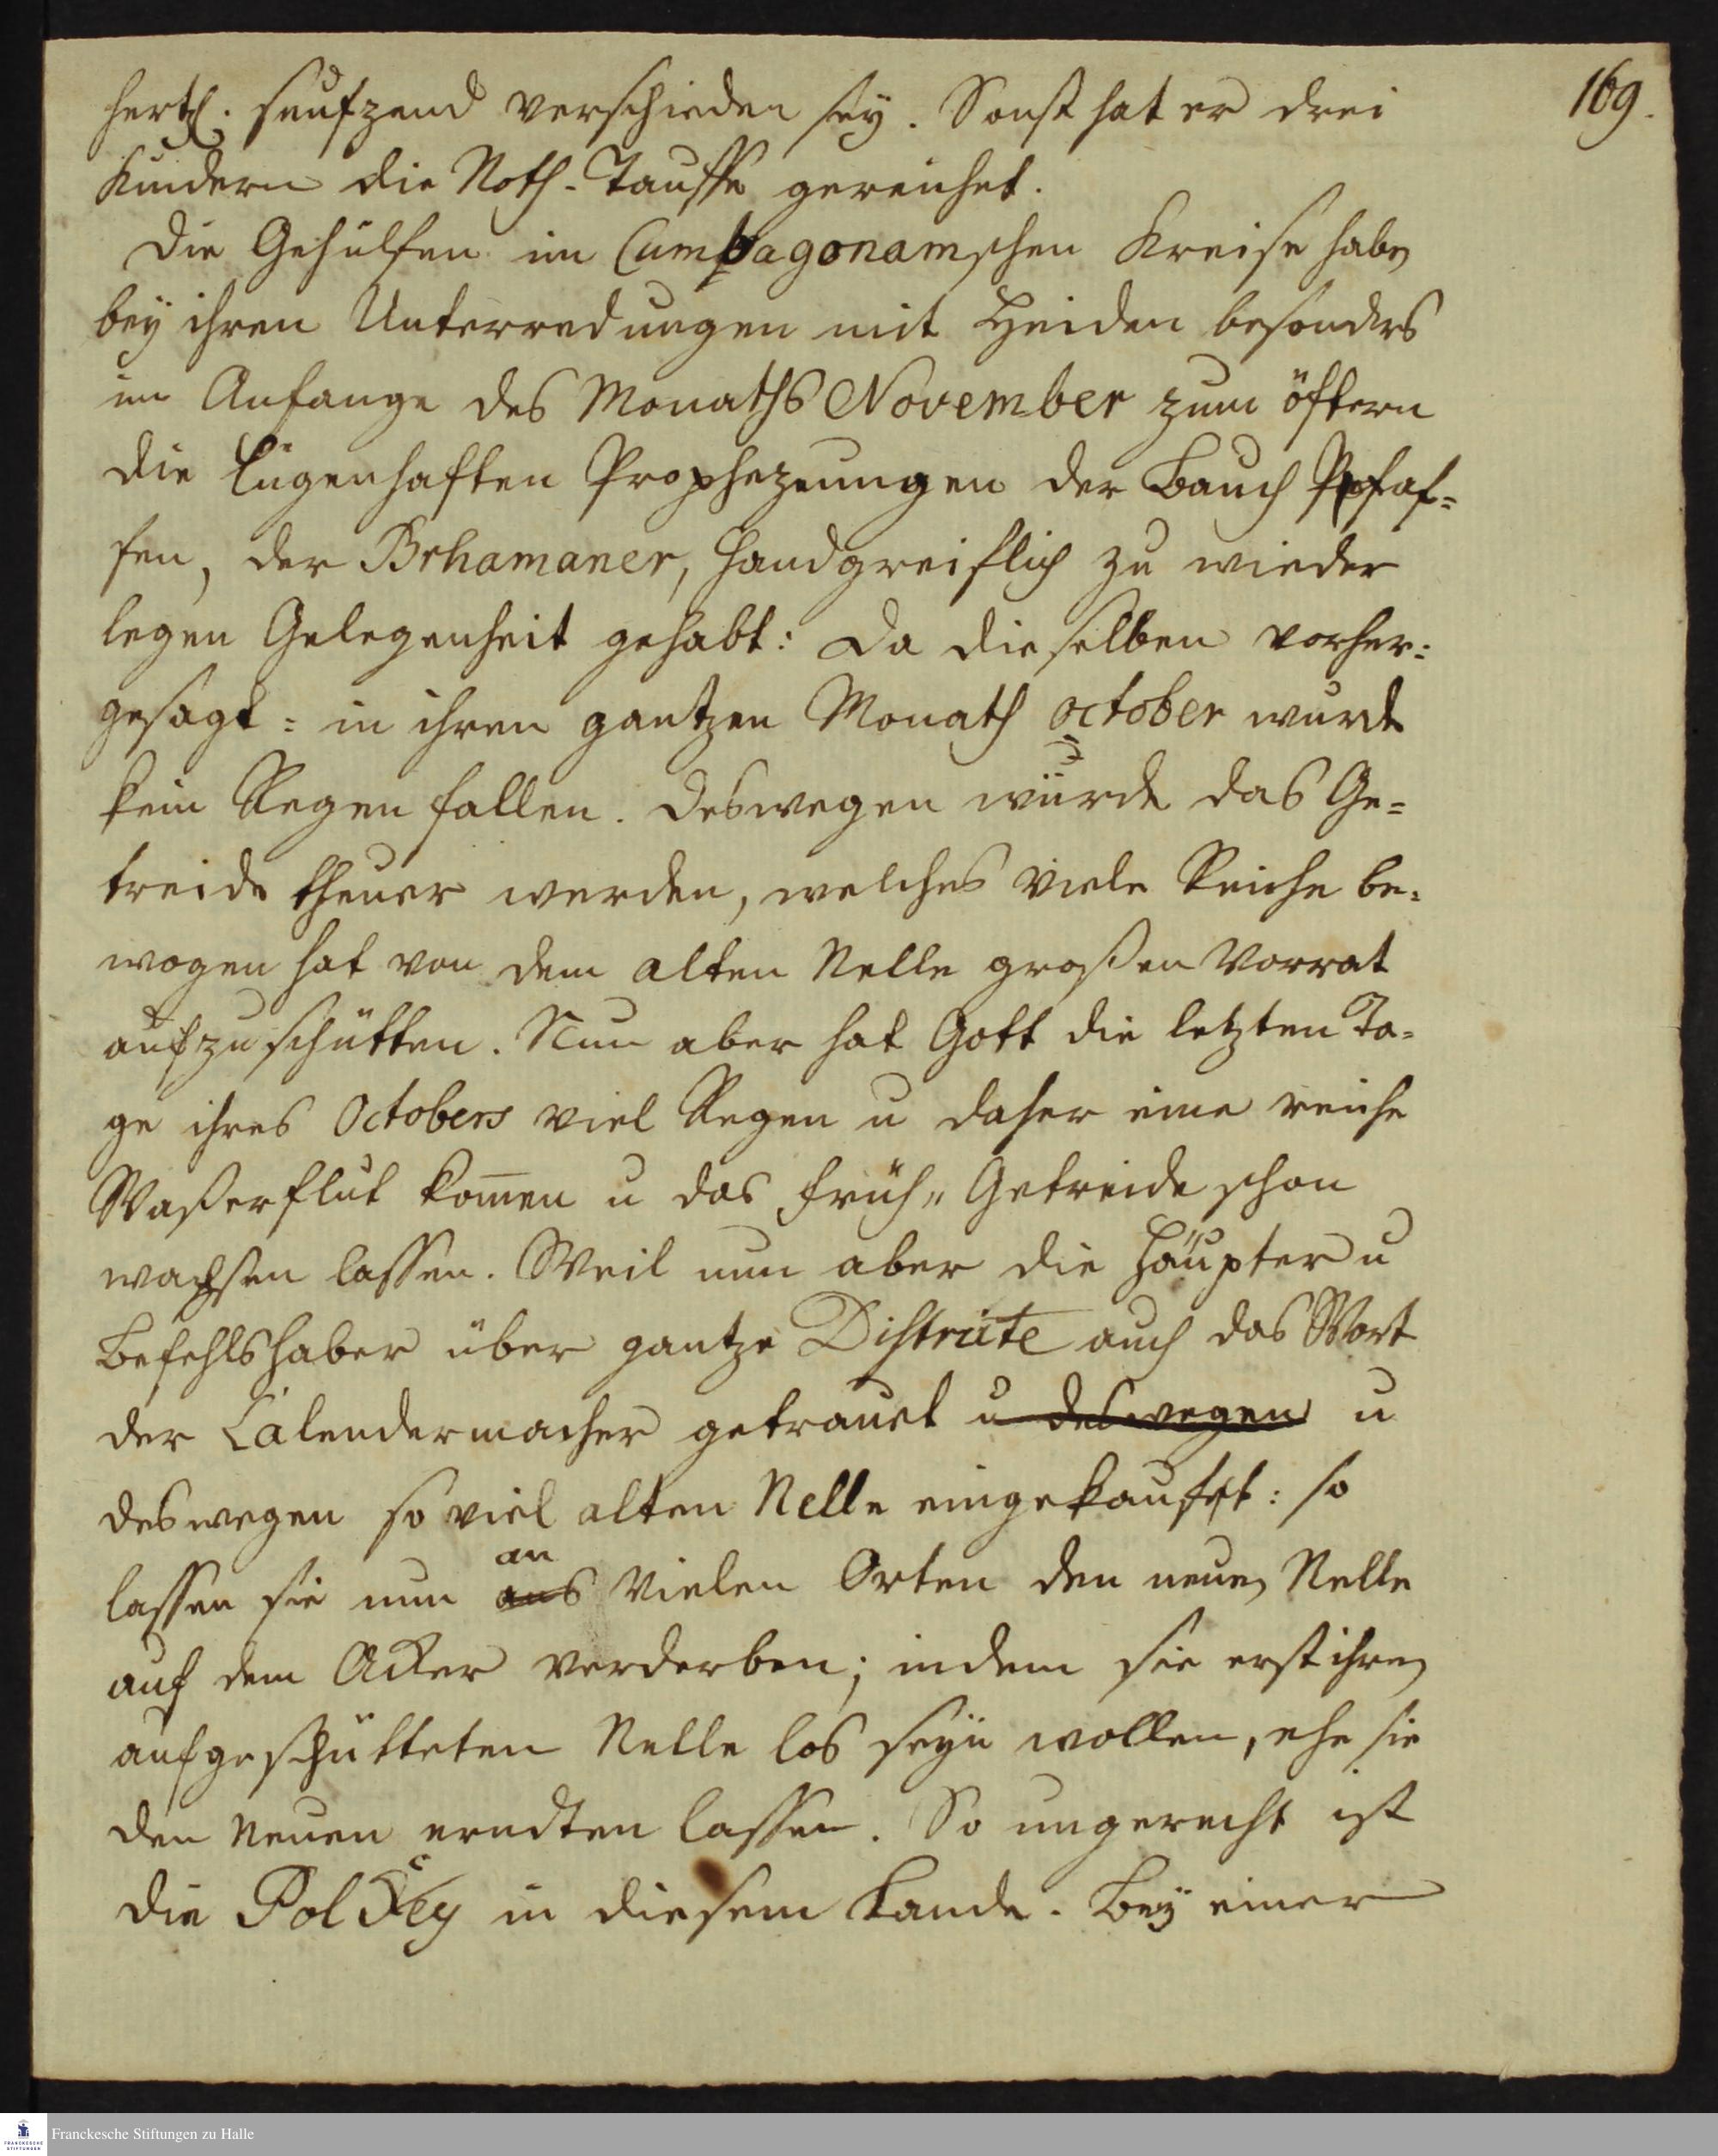 169.
hertzl. seufzend verschieden sey. Sonst hat er drei
Kindern die Noth-Tauffe gereichet.
Die Gehülfen im Cumbagonamschen Kreise haben
bey ihren Unterredungen mit Heiden besonders
im Anfange des Monaths November zum öftern
die lügenhaften Prophezeungen der Bauch Pfaf=
fen, der Brhamaner, handgreiflich zu wieder
legen Gelegenheit gehabt: Da dieselben vorher=
gesagt: in ihren gantzen Monath October wurde
kein Regen fallen. Deswegen würde das Ge=
treide theuer werden, welches viele Reiche be=
wogen hat von dem alten Nelle großen Vorrat
aufzuschütten. Nun aber hat Gott die letzten Ta=
ge ihres Octobers viel Regen u daher eine reiche
Waßerflut kom̅en u das früh= Getreide schon
wachsen lassen. Weil nun aber die Häupter u
Befehlshaber über gantze Districte auch das Wort
der Calendermacher getrauet u deswegen u
deswegen so viel alten Nelle eingekauft: so
an
lassen sie nun aus vielen Orten den neuen Nelle
auf dem Acker verderben; indem sie erst ihren
aufgeschütteten Nelle los seyn wollen, ehe sie
den neuen erndten lassen. So ungerecht ist
die Policey in diesem Lande. Bey einer
Franckesche Stiftungen zu Halle
FRANCKESCHE
STIFTUNGEN